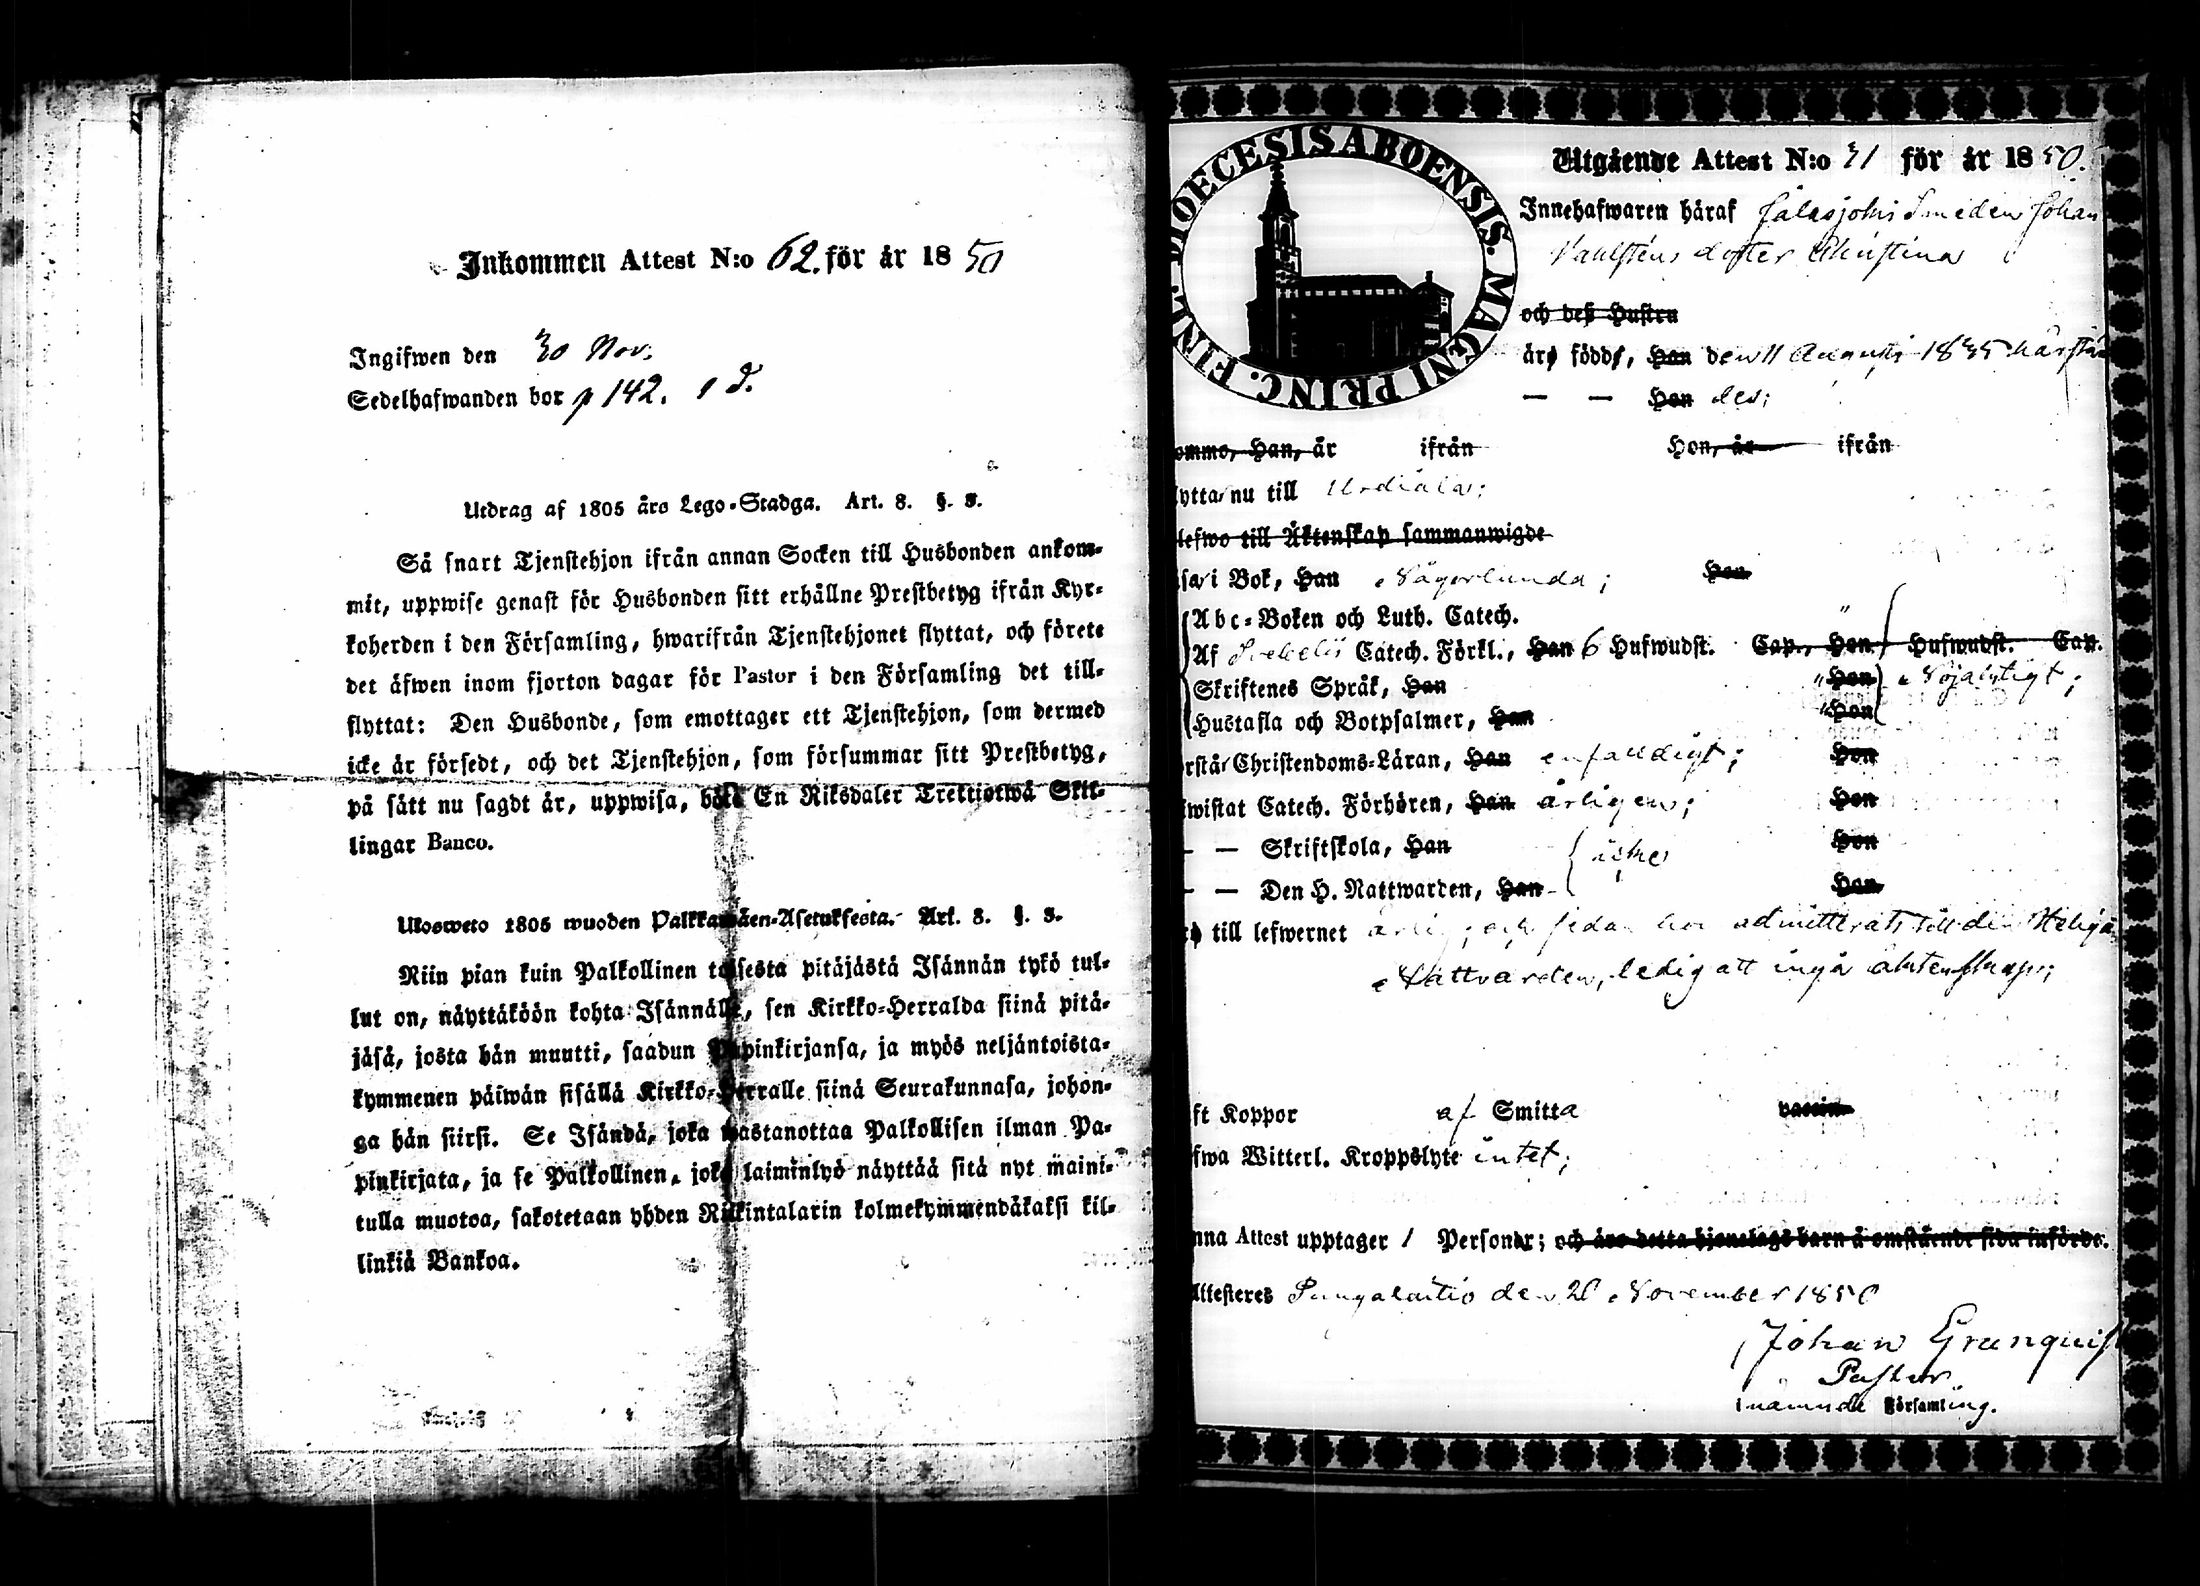 Inkommen Attest N:o 62. för år 1850
Ingifwen den 30 Nov.
Sedelhafwanden bor p 142.
Utdrag af 1805 års Lego-Stadga. Art. 8. §. 3.
Så snart Tjenstehjon ifrån annan Socken till Husbonden ankom-
mit, uppwise genast för Husbonden sitt erhållne Prestbetyg ifrån Kyr-
koherden i den Församling, hwarifrån Tjenstehjonet flyttat, och förete
det äfwen inom fjorton dagar för Pastor i den Församling det till-
flyttat: Den Husbonde, som emottager ett Tjenstehjon, som dermed
icke är försedt, och det Tjenstehjon, som försummar sitt Prestbetyg,
på sätt nu sagdt är, uppwisa, böte En Riksdaler Trettiotwå Skil-
lingar Banco.
Ulosweto 1805 wuoden Palkkawäen-Asetuksesta. Art. 8. §. 3.
Niin pian kuin Palkollinen toisesta pitäjästä Isännän tykö tul-
lut on, näyttäköön kohta Isännälle, sen Kirkko-Herralda siinä pitä-
jäsä, josta hän muutti, saadun Papinkirjansa, ja myös neljäntoista-
kymmenen päiwän sisällä Kirkko-Herralle siinä Seurakunnasa, johon-
ga hän siirsi. Se Isändä, joka wastanottaa Palkollisen ilman Pa-
pinkirjata, ja se Palkollinen, joka laiminlyö näyttää sitä nyt maini-
tulla muotoa, sakotetaan yhden Riikintalarin kolmekymmendäkaksi kil-
linkiä Bankoa.
DIOECESIS ABOENSIS. MAGNI PRINC. FINL.
Utgående Attest N:o 31 för år 1850.
Innehafwaren häraf Jalasjoki Smeden Johan
Vahlstens dotter Christina
och dess Hustru
äro födde, Han den 11 Augusti 1835 härstä
— — Hon des;
ommo, Han, år ifrån Hon, år ifrån
lytta nu till Urdiala;
lefwo till Äktenskap sammanwigde
äsa i Bok, Han Någorlunda; Hon
Abc-Boken och Luth. Catech.
Af Svebelii Catech. Förkl., Han 6 Hufwudst. Cap., Hon Hufwudst. Cap.
Skriftenes Språk, Han " Hon Nöjaktigt;
Hustafla och Botpsalmer, Han " Hon
rstå Christendoms-Läran, Han enfaldigt; Hon
wistat Catech. Förhören, Han årligen; Hon
— — Skriftskola, Han icke Hon
— — Den H. Nattwarden, Han Hon
till lefwernet ärlig; och sedan hon admitterats till den Heliga
Nattvarden, ledig att ingå äktenskap;
ft Koppor af Smitta vaccin
fwa Witterl. Kroppslyte intet;
nna Attest upptager 1 Personer; och äro detta hjonelags barn å omstående sida införde.
Attesteres Pungalaitio den 28 November 1850
Johan Granquist
Pastor
i nämnde Församling.